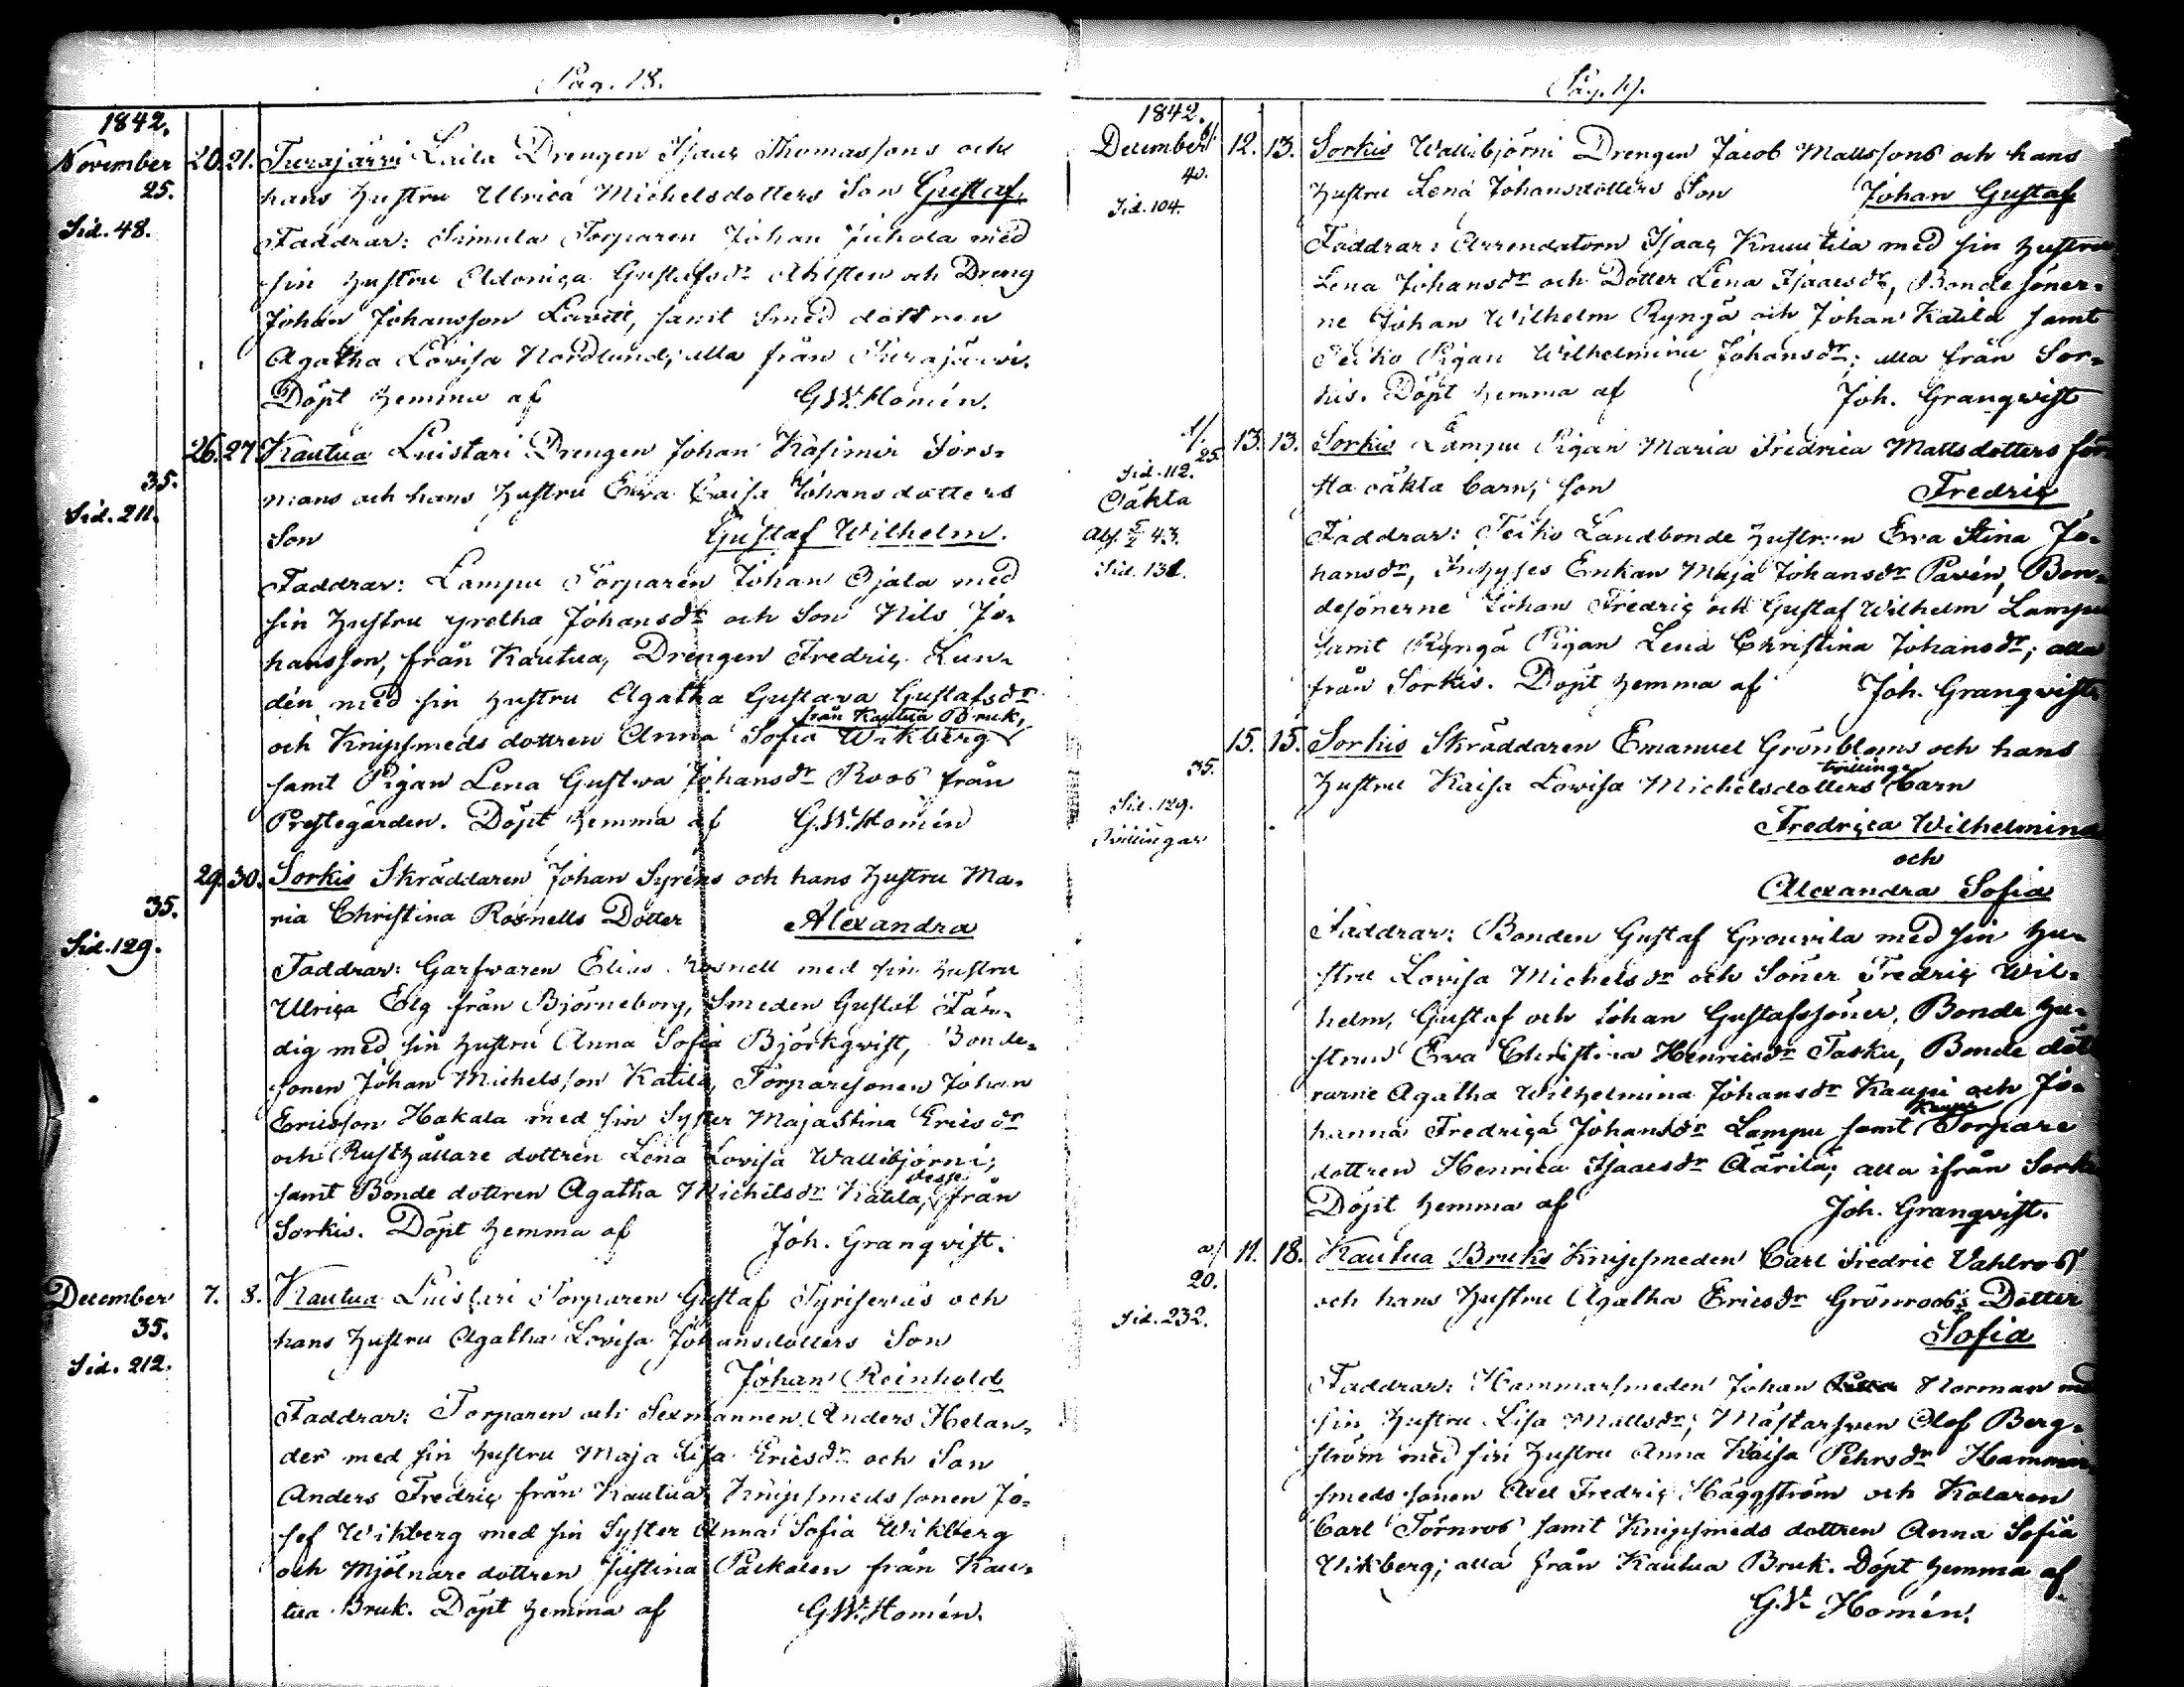 Pag. 18.
1842.
November 20. 21. Turajärvi Laila Drengen Isaac Thomassons och
25. hans Hustru Ulrica Michelsdotters Son Gustaf.
Sid. 48.
Faddrar: Simula Torparen Johan Juhola med
sin Hustru Gustafsdr Ahlsten och Dreng
Johan Johansson Lavett, samt Smed dottren
Agatha Lovisa Nordlund; alla från Turajärvi.
Döpt hemma af G.W. Homén.
26. 27 Kautua Luistari Drengen Johan Kasimir Fors-
35. mans och hans Hustru Ewa Caisa Johansdotters
Sid. 211.
Son Gustaf Wilhelm.
Faddrar: Lampu Torparen Johan Ojala med
sin Hustru Gretha Johansdr och Son Nils Jo-
hansson, från Kautua, Drengen Fredric Lun-
dén med sin Hustru Agatha Gustava Gustafsdr
från Kautua Bruk,
och Knipsmeds dottren Anna Sofia Wikberg
samt Pigan Lena Gustava Johansdr Roos från
Prestegården. Döpt hemma af G.W. Homén
29. 30. Sorkis Skräddaren Johan Syréns och hans Hustru Ma-
35. ria Christina Rosnells Dotter Alexandra
Sid. 129.
Faddrar: Garfvaren Elias Rosnell med sin Hustru
Ulrica Elg från Björneborg, Smeden Gustaf Fär-
dig med sin Hustru Anna Sofia Björkqvist, Bonde-
sonen Johan Michelsson Katila, Torparesonen Johan
Ericsson Hakala med sin Syster Majastina Ericsdr
och Rusthållare dottren Lena Lovisa Wallibjörni;
desse
samt Bonde dottren Agatha Michelsdr Katila, från
Sorkis. Döpt hemma af Joh. Granqvist.
December 7. 8. Kautua Luistari Torparen Gustaf och
35. hans Hustru Agatha Lovisa Johansdotters Son
Sid. 212.
Johan Reinhold
Faddrar: Torparen och Sexmannen Anders Helan-
der med sin Hustru Maja Lisa Ericsdr och Son
Anders Fredric från Kautua, Knipsmedssonen Jo-
sef Wikberg med sin Syster Anna Sofia Wikberg
och Mjölnare dottren Justina från Kau-
tua Bruk. Döpt hemma af G.W. Homén.
Pag. 19.
1842.
December 12. 13. Sorkis Wallibjörni Drengen Jacob Mattssons och hans
40.
Sid. 104.
Hustru Lena Johansdotters Son Johan Gustaf
Faddrar: Arrendatorn Isaac Knuutila med sin Hustru
Lena Johansdr och Dotter Lena Isaacsdr, Bondesöner-
ne Johan Wilhelm Ryngä och Johan Katila samt
Seiko Pigan Wilhelmina Johansdr; alla från Sor-
kis. Döpt hemma af Joh. Granqvist
13. 13. Sorkis Lampu Pigan Maria Fredrica Mattsdotters för-
25.
Sid. 112.
sta oäkta barn; son Fredric
Oäkta
Abs. 43.
Sid. 131.
Faddrar: Seiko Landbonde Hustrun Ewa Stina Jo-
hansdr, Inhyses Enkan Maja Johansdr Pavén, Bon-
desönerne Johan Fredric och Gustaf Wilhelm Lampu
samt Ryngä Pigan Lena Christina Johansdr; alla
från Sorkis. Döpt hemma af Joh. Granqvist.
15. 15. Sorkis Skräddaren Emanuel Grönbloms och hans
35.
tvillinge
Hustru Kaisa Lovisa Michelsdotters barn
Sid. 129.
Tvillingar
Fredrica Wilhelmina
och
Alexandra Sofia
Faddrar: Bonden Gustaf Grouvila med sin Hu-
stru Lovisa Michelsdr och Söner Fredric Wil-
helm, Gustaf och Johan Gustafssöner, Bonde Hu-
strun Ewa Christina Henricsdr Tasku, Bonde dött-
rarne Agatha Wilhelmina Johansdr Kaupi och Jo-
Kaupi
hanna Fredrica Johansdr Lampu samt Torpare
dottren Henrica Isaacsdr Äärilä; alla ifrån Sorkis
Döpt hemma af Joh. Granqvist.
11. 18. Kautua Bruks Knipsmeden Carl Fredric Vahlroos
20.
och hans Hustru Agatha Ericsdr Grönroos's Dotter
Sid. 232.
Sofia
Faddrar: Hammarsmeden Johan Norman med
sin Hustru Lisa Mattsdr; Mästarsven Olof Berg-
ström med sin Hustru Anna Kaisa Pehrsdr Hammar-
smeds sonen Axel Fredric Häggström och Kolaren
Carl Törnroos samt Knipsmeds dottren Anna Sofia
Wikberg; alla från Kautua Bruk. Döpt hemma af
G.W. Homén.